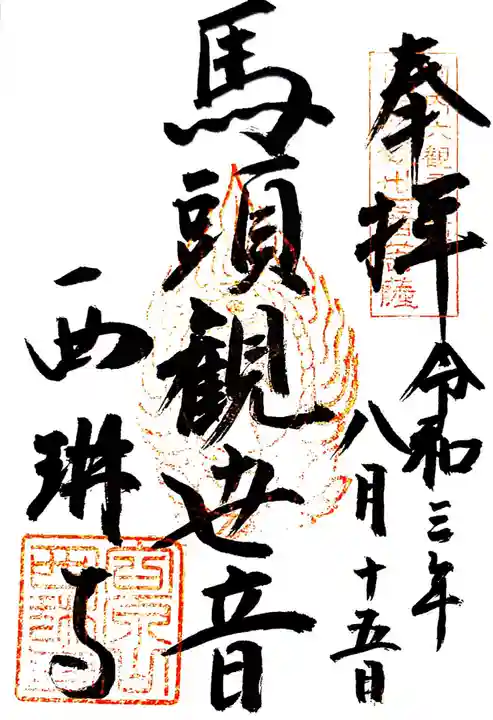 奉拝
令和三年
八月十五日
馬頭観世音
西琳寺